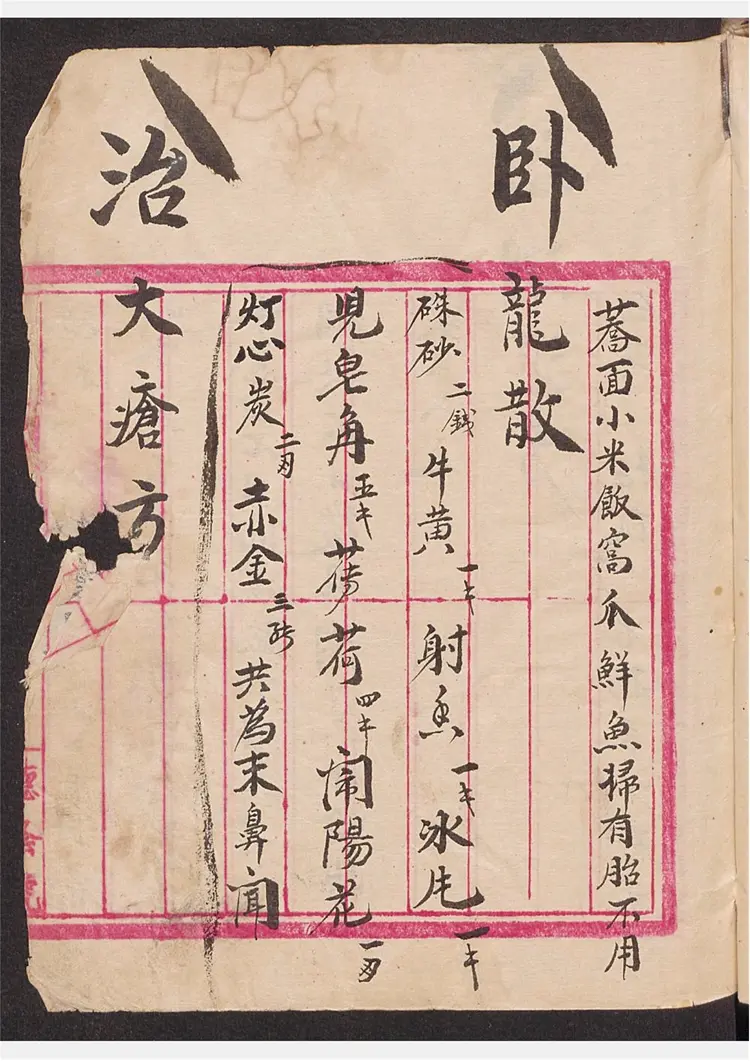 蕎面小米飯窩爪鮮魚婦有胎不用
卧龍散
硃砂二錢牛黄一千射香一千冰片一千
児皂角五千荷四千鬧陽花一刄
灯心炭二刄赤金三共為末鼻聞
治大瘡方